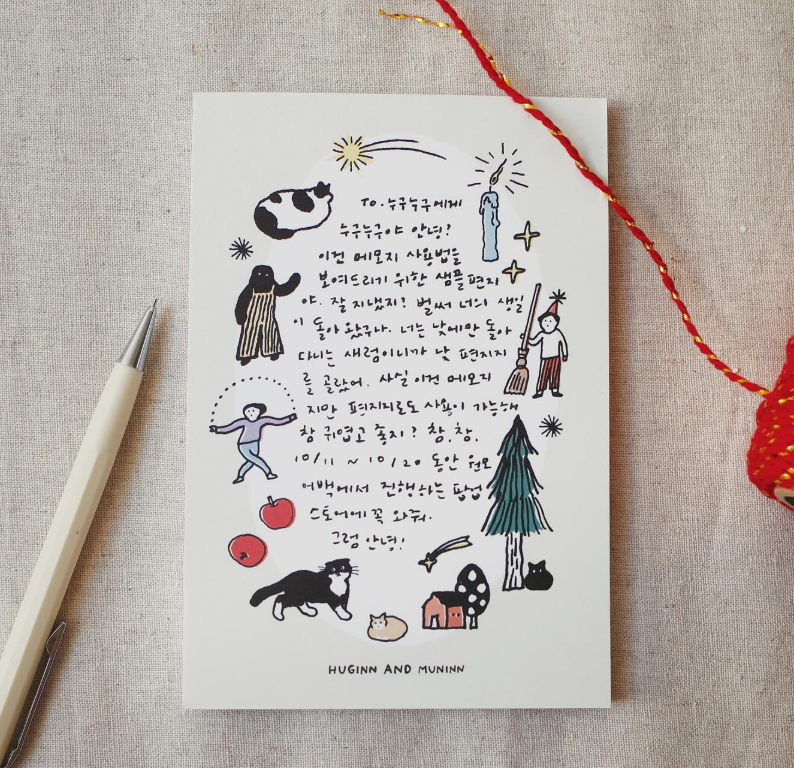 To. 누구누구에게
누구누구야 안녕?
이건 메모지 사용법을
보여드리기 위한 샘플편지
야. 잘 지냈지? 벌써 너의 생일
이 돌아왔구나. 너는 낮에만 돌아
다니는 새럼이니까 낮 편지지
를 골랐어. 사실 이건 메모지
지만 편지지로도 사용이 가능해
참 귀엽고 좋지? 참, 참.
10/11 ~ 10/20 동안 원모
어백에서 진행하는 팝업
스토어에 꼭 와줘.
그럼 안녕!
HUGINN AND MUNINN